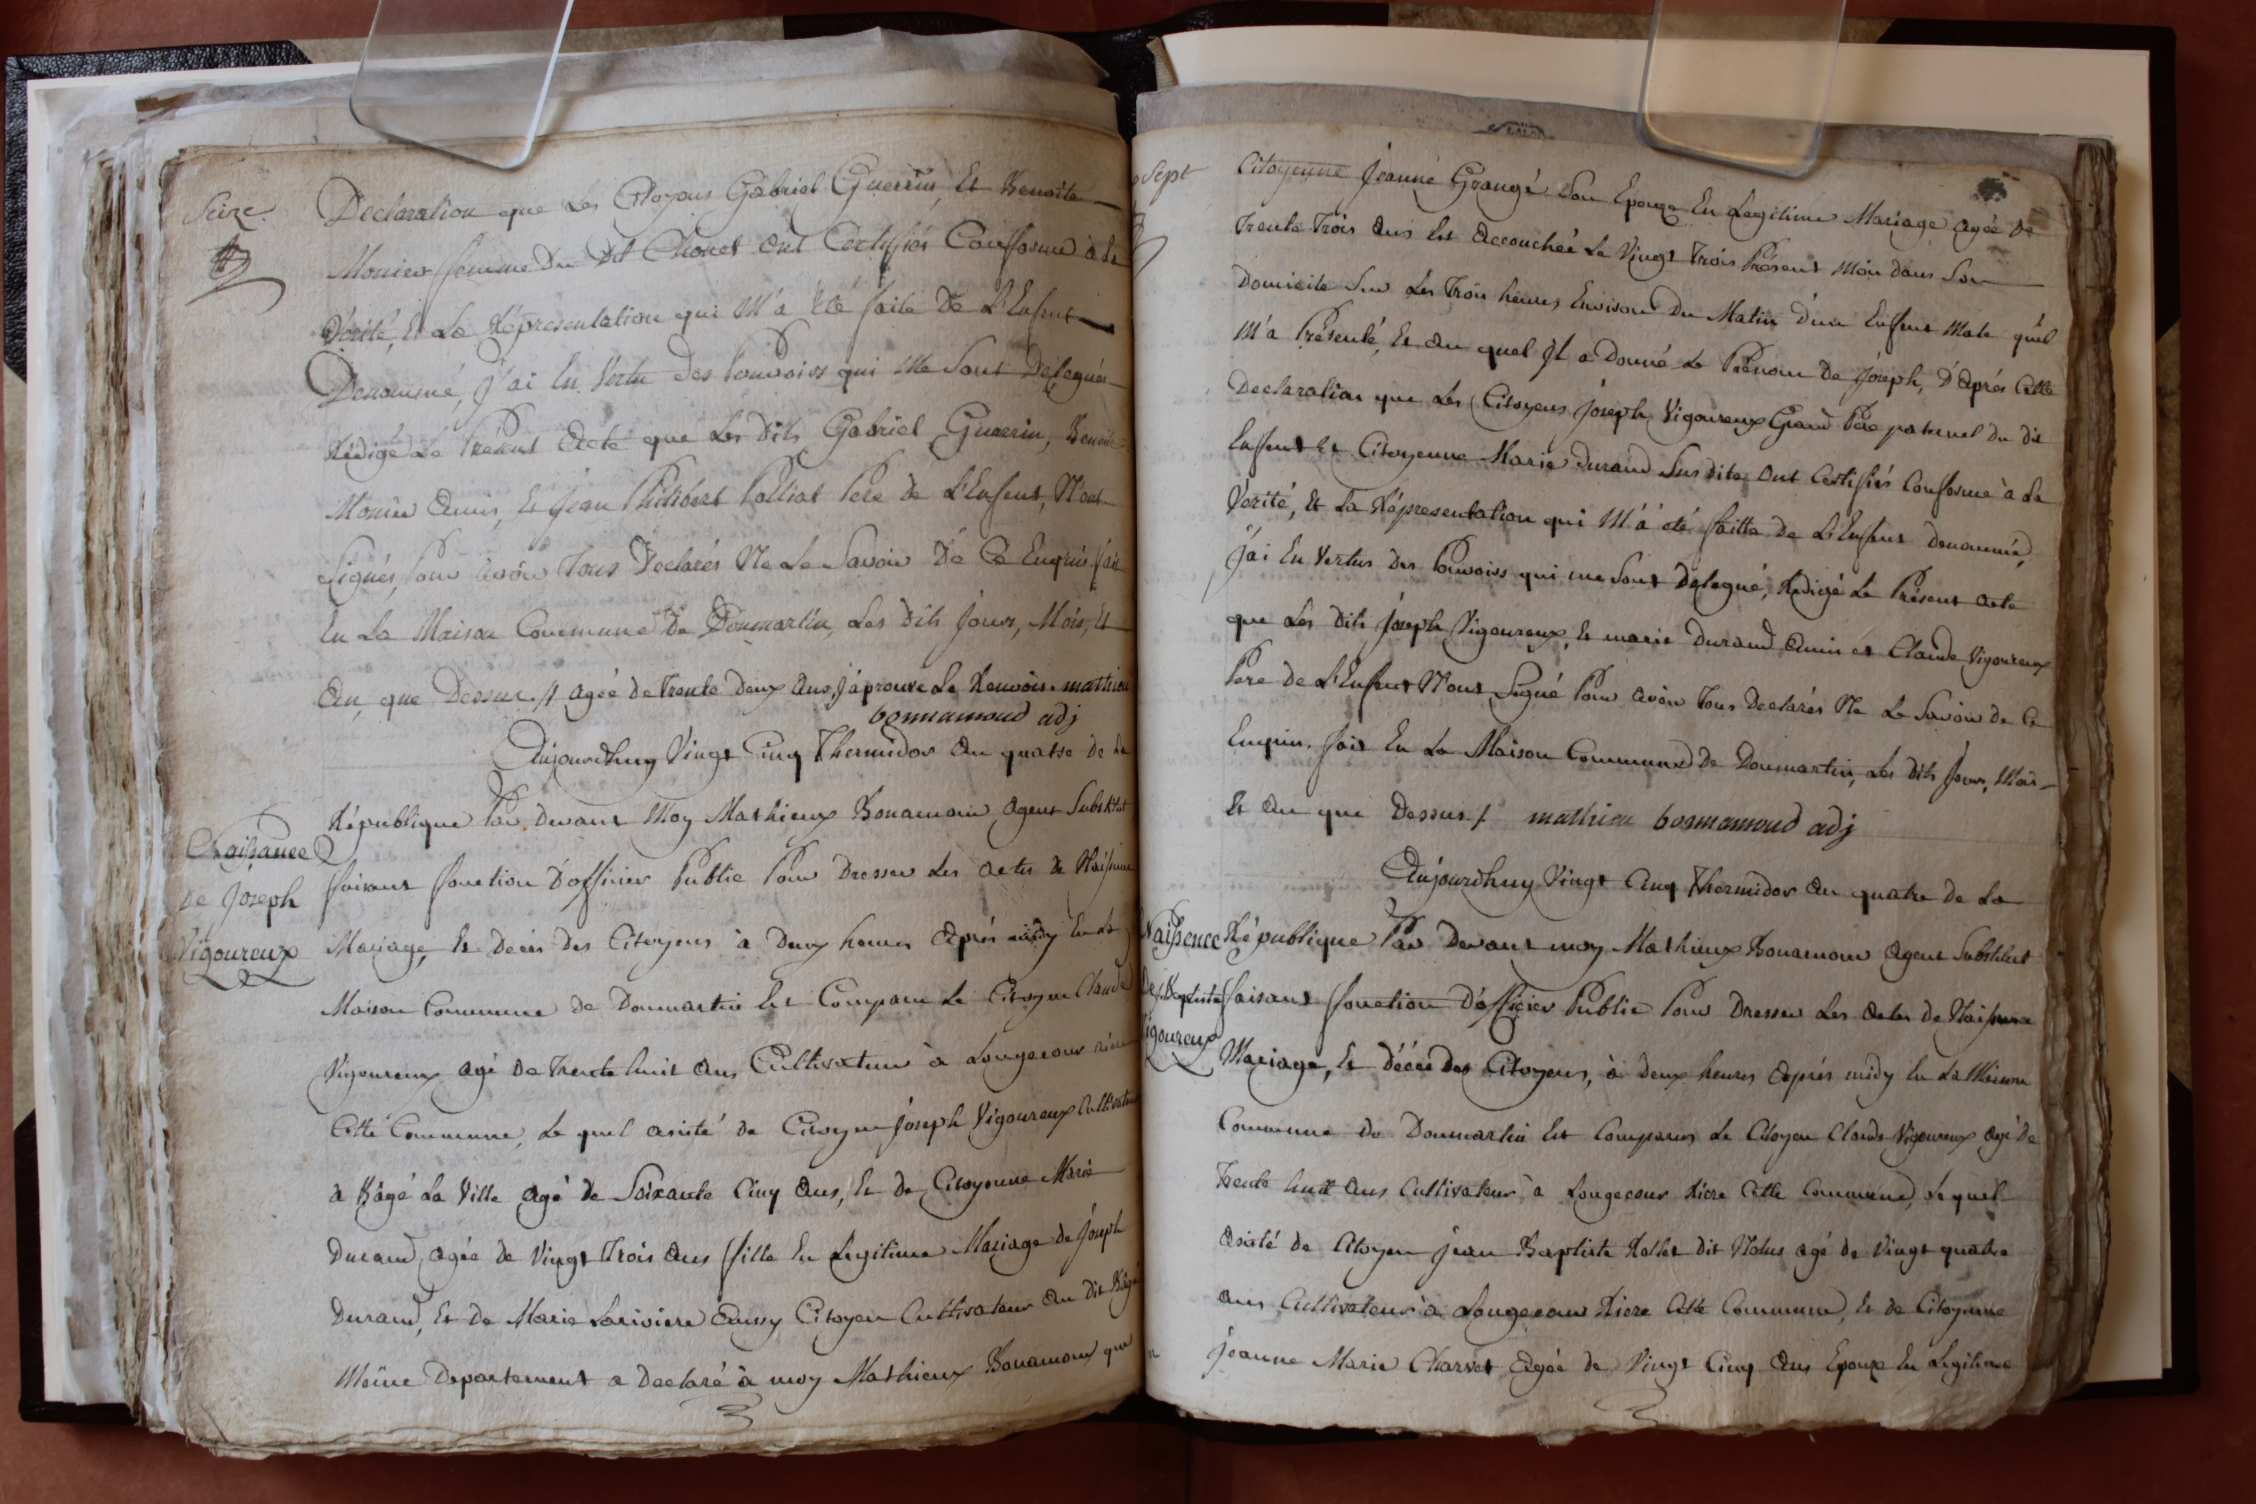 Seize
Declaration que Les Citoyens Gabriel Guerrin, Et Benoite
Monier femme Du Dit Chonet ont Certifiés Conforme à la
Vérité, Et La Répresentation qui M'a Eté faite De L'Enfent
Denommé, J'ai En Vertu Des Pouvoirs qui Me Sont Délegués
Rédigé Le Présent Acte que Les Dits Gabriel Guerrin, Benoite
Monier Amis, Et Jean Philibert Polliat Pere de L'Enfent, N'ont
Signés, Pour Avoir Tous Declarés Ne Le Savoir De Ce Enquis fait
En La Maison Commune De Dommartin, Les Dits Jours, Mois, Et
An, que Dessus // agée de Trente Deux Ans J'aprouve Le Renvois. mathieu
bonnamoud adj
Aujourdhuy Vingt Cinq Thermidor An quatre de La
République Par Devant Moy Mathieux Bonamour Agent Substitut
Naissance
de Joseph
Vigoureux
faisant fonction D'officier Public Pour Dresser Les actes de Naissance
Mariage, Et Decès Des Citoyens à Deux heures Après midy En La
Maison Commune de Dommartin Est Comparu Le Citoyen Claude
Vigoureux agé De Trente huit Ans Cultivateur à Longecour rière
Cette Commune, Le quel asisté de Citoyen Joseph Vigoureux Cultivateur
a Bâgé La Ville agé de Soixante Cinq Ans, Et de Citoyenne Marie
Durand, agée de Vingt Trois Ans fille En Legitime Mariage de Joseph
Durand, Et De Marie Lariviere Aussy Citoyen Cultivateur Au Dit Bâgé
Même Departement a Declaré à moy Mathieux Bonamour que
Sept
Citoyenne Jeanne Grangé Son Epouze En Legitime Mariage agée De
Trente Trois Ans Est Accouchée Le Vingt Trois Présent Mois dans Son
Domicile Sur Les Trois heures Environ Du Matin D'un Enfent Male qu'il
M'a Présenté, Et Au quel Il a Donné Le Prénom De Joseph, D'Aprés Cette
Declaration que Les Citoyens Joseph Vigoureux Grand Pere paternel du dit
Enfent Et Citoyenne Marie Durand Sus dite Ont Certifiés Conforme à La
Verité, Et La Répresentation qui M'a été faitte de L'Enfent denommé,
J'ai En Vertus Des Pouvoirs qui me Sont Delegué, Redigé Le Présent acte
que Les Dits Joseph Vigoureux, Et marie Durand Amis et Claude Vigoureux
Pere de L'Enfent N'ont Signé Pour avoir Tous Declarés Ne Le Savoir de Ce
Enquis. fait En La Maison Commune De Dommartin, Les Dits Jours, Mois
Et An que Dessus / mathieu bonnamoud adj
Aujourdhuy Vingt Cinq Thermidor An quatre de La
Naissence
de J. Baptiste
Vigoureux
République Par Devant moy Mathieux Bonamour Agent Substitut
faisant fonction D'officier Public Pour Dresser Les Actes de Naissance
Mariage, Et Décés Des Citoyens, à Deux heures Aprés midy En La Maison
Commune De Dommartin Est Comparus Le Citoyen Claude Vigoureux agé de
Trente huit Ans Cultivateur à Longecour Riere Cette Commune, Le quel
Asisté de Citoyen Jean Baptiste dit agé de Vingt quatre
Ans Cultivateur à Longecour Riere Cette Commune, Et de Citoyenne
Jeanne Marie Charvet Agée de Vingt Cinq Ans Epouze En Legitime